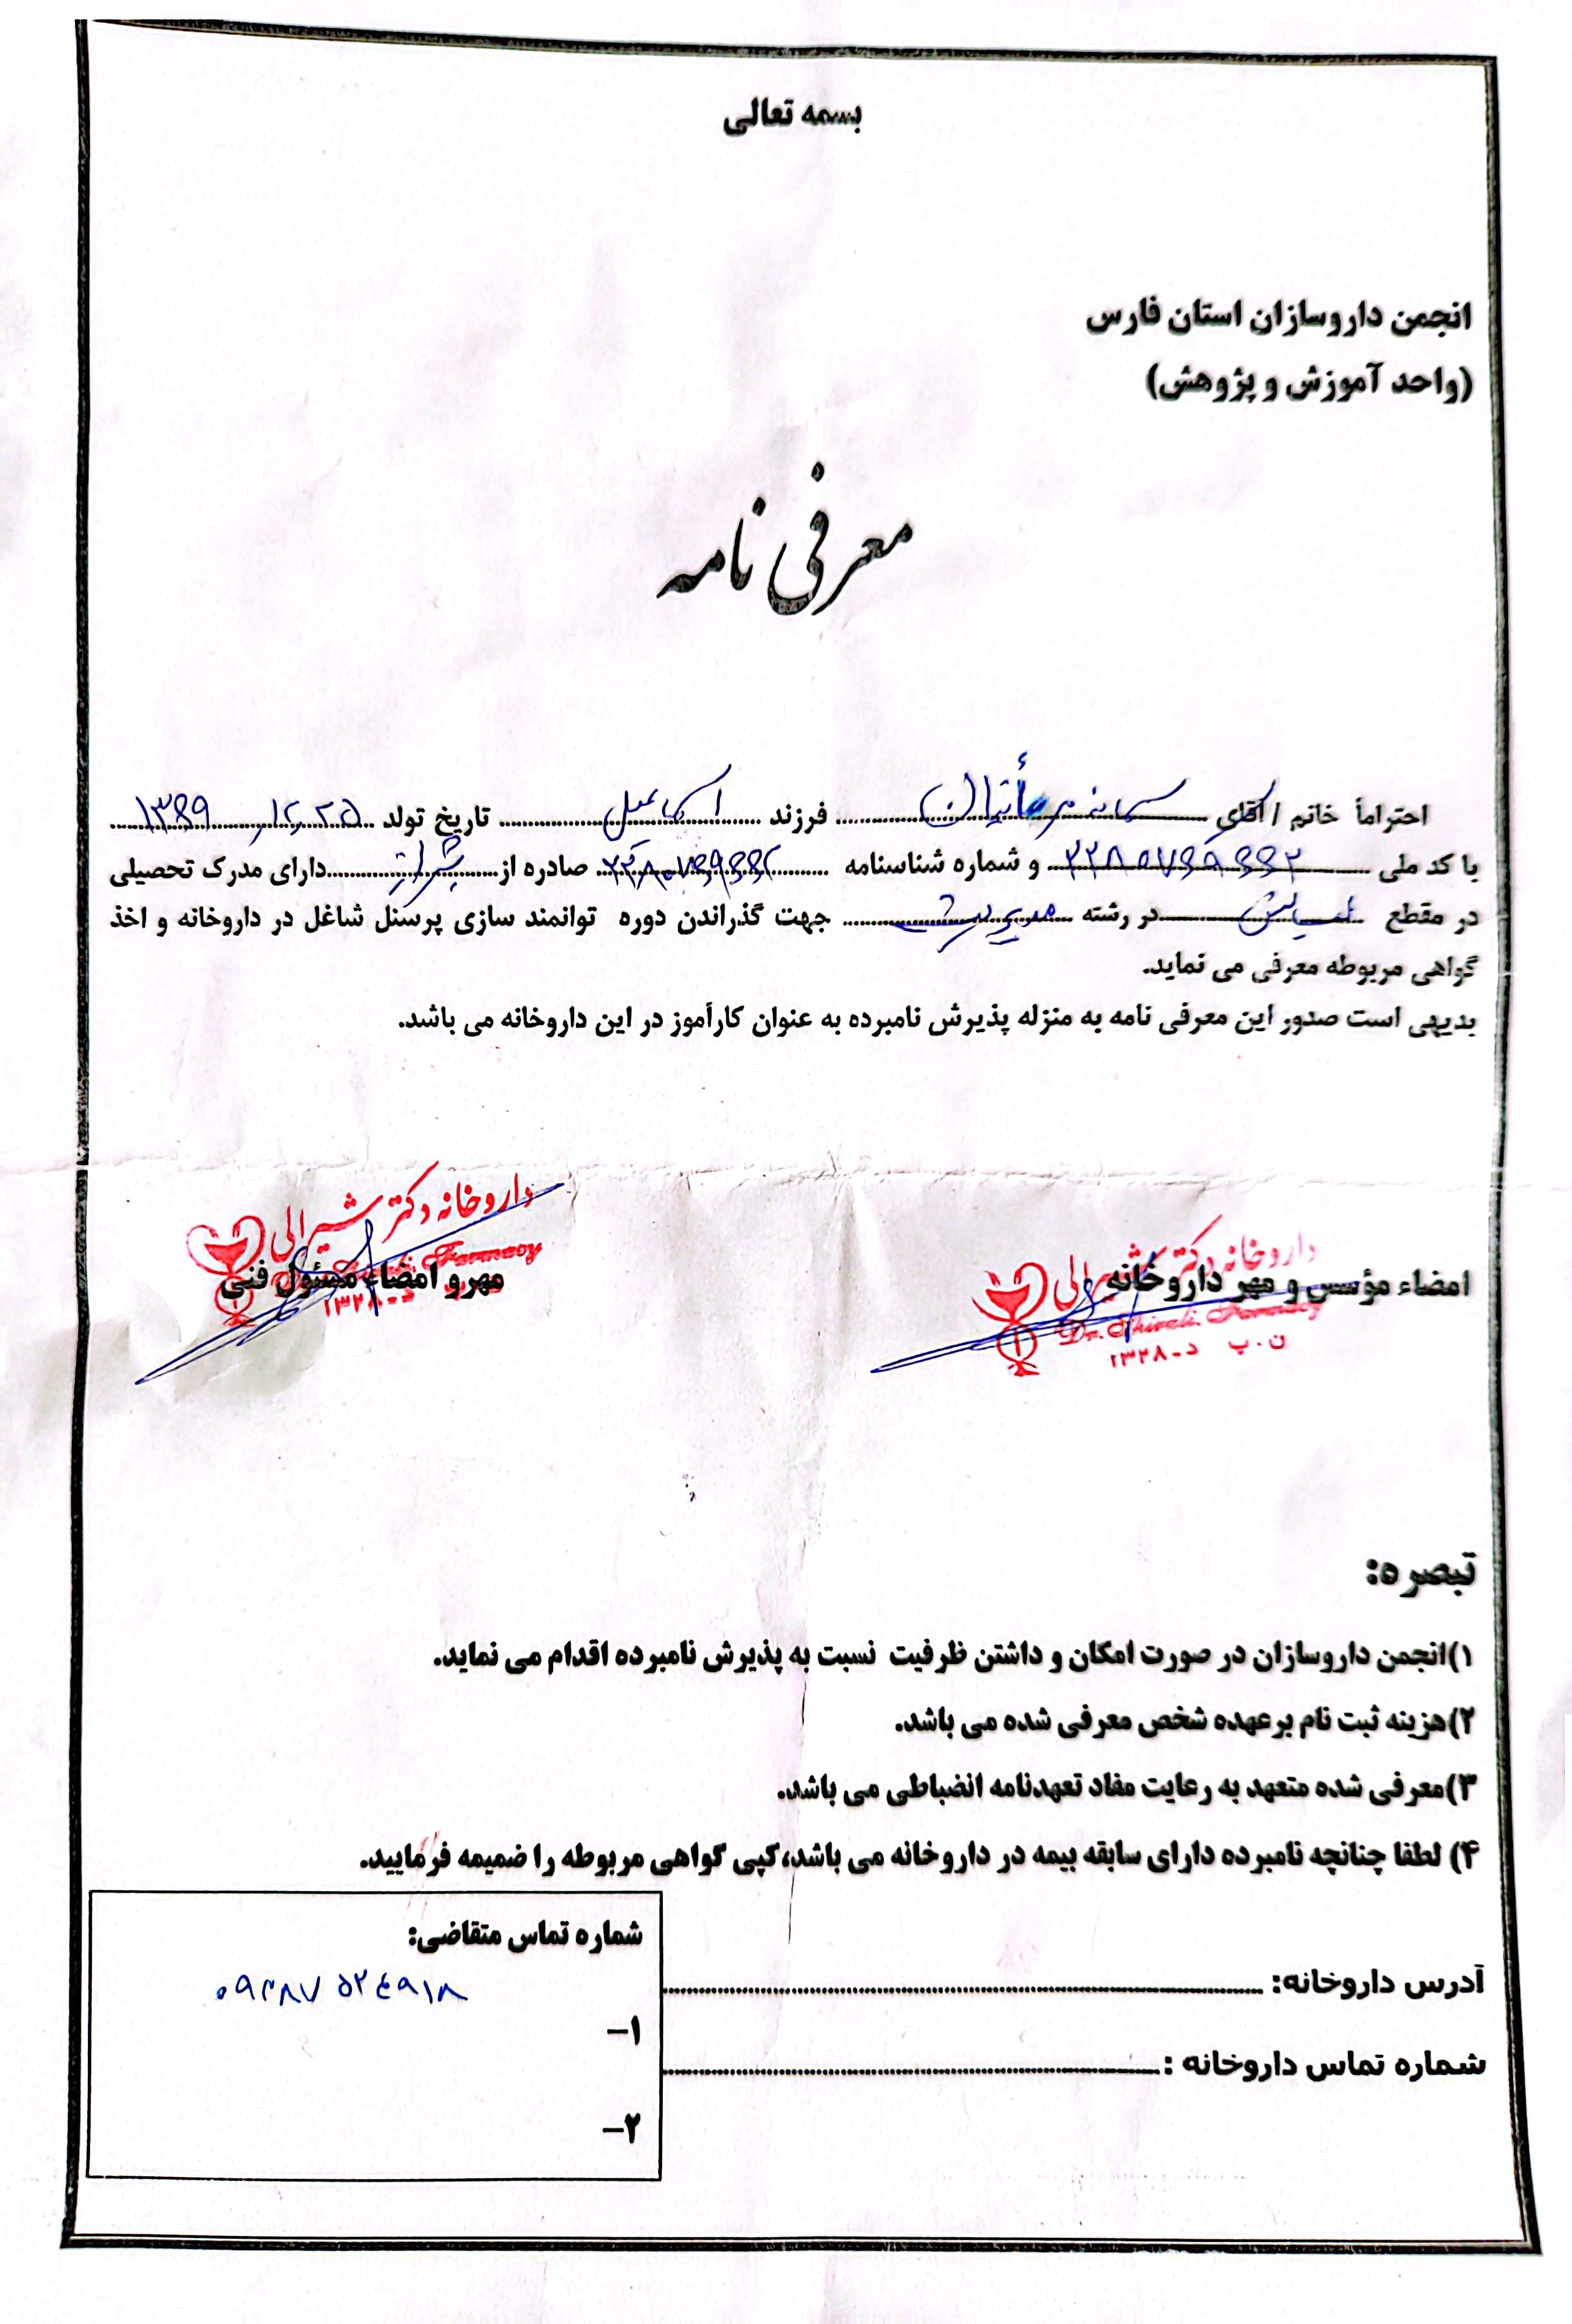 بسمه تعالی
انجمن داروسازان استان فارس
(واحد آموزش و پژوهش)
معرفی نامه
احتراماً خانم / آقای سمانه فرزند اسماعیل تاریخ تولد ۱۳۶۹
با کد ملی ۲۲۸۰۷۶۹۶۶۲ و شماره شناسنامه ۲۲۸۰۷۶۹۶۶۲ صادره از شیراز دارای مدرک تحصیلی
در مقطع لیسانس در رشته مدیریت جهت گذراندن دوره توانمند سازی پرسنل شاغل در داروخانه و اخذ
گواهی مربوطه معرفی می نماید.
بدیهی است صدور این معرفی نامه به منزله پذیرش نامبرده به عنوان کارآموز در این داروخانه می باشد.
امضاء مؤسس و مهر داروخانه
داروخانه دکتر شیرالی
Dr. Shirali. Farmacy
ن.پ د-۱۳۲۸
مهر و امضاء مسئول فنی
داروخانه دکتر شیرالی
Farmacy
د-۱۳۲۸
تبصره:
۱)انجمن داروسازان در صورت امکان و داشتن ظرفیت نسبت به پذیرش نامبرده اقدام می نماید.
۲)هزینه ثبت نام بر عهده شخص معرفی شده می باشد.
۳)معرفی شده متعهد به رعایت مفاد تعهدنامه انضباطی می باشد.
۴) لطفا چنانچه نامبرده دارای سابقه بیمه در داروخانه می باشد،کپی گواهی مربوطه را ضمیمه فرمایید.
آدرس داروخانه:
شماره تماس داروخانه :
شماره تماس متقاضی:
۰۹۳۸۷۵۲۴۹۱۸
۱-
۲-